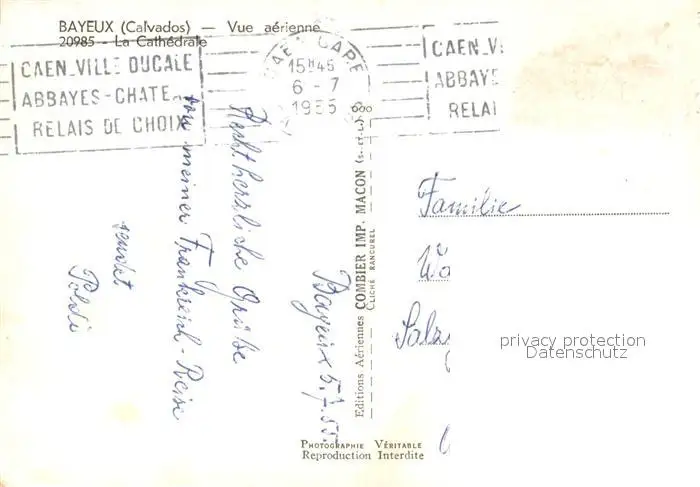 BAYEUX (Calvados) — Vue aérienne
20985 - La Cathédrale
CAEN VILLE DUCALE
ABBAYES-CHATE
RELAIS DE CHOIX
CAEN GARE
15H45
6 - 7
1955
CAEN VI
ABBAYE
RELAI
Bayeux 5.7.55.
Recht herzliche Grüße
von meiner Frankreich-Reise
sendet
Poldi
Editions Aériennes COMBIER IMP. MACON (S.-ET-L.)
CLICHÉ RANCUREL
Familie
Salz
privacy protection
Datenschutz
PHOTOGRAPHIE VÉRITABLE
Reproduction Interdite